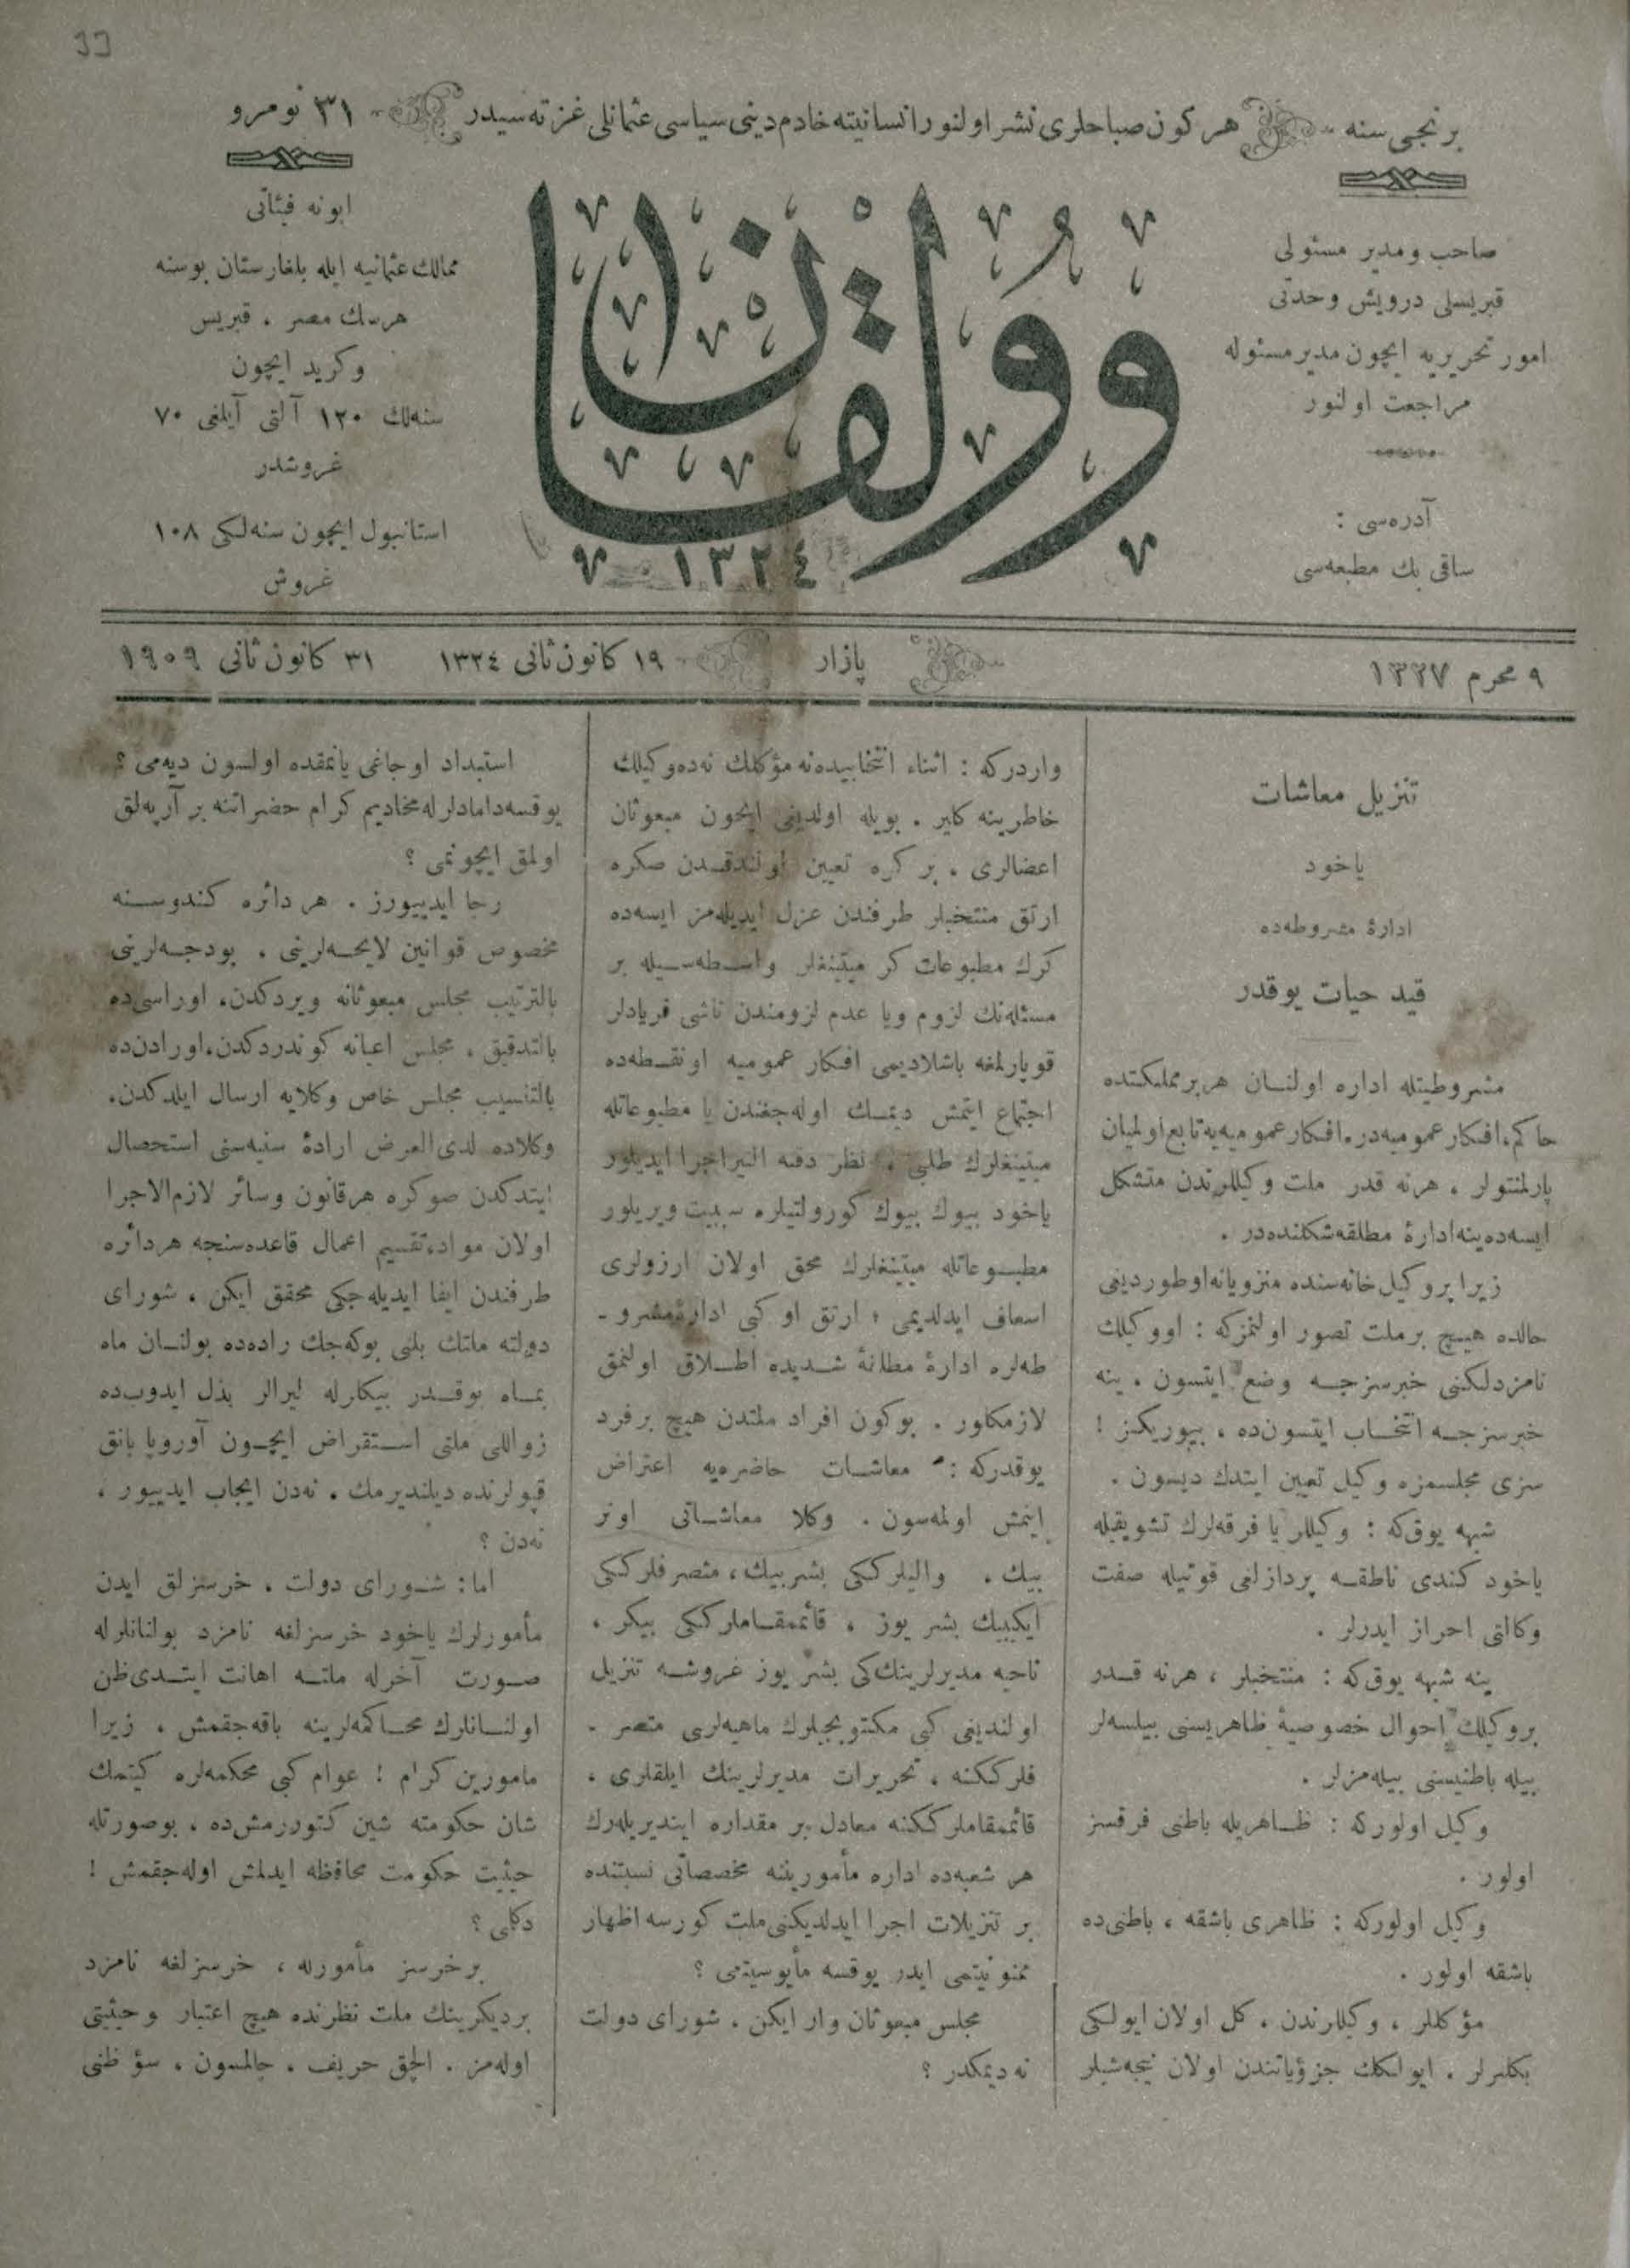 برنجی سنه
هر كون صباحلری نشر اولنور انسانیته خادم دینی سیاسی عثمانلی غزته سیدر
٣١ نومرو
صاحب و مدیر مسئولی
قبریسلی درویش وحدتی
امور تحریریه ایچون مدیر مسئوله
مراجعت اولنور
آدره‌سی :
ساقی بك مطبعه‌سی
وولقان
١٣٢٤
ابونه فیئاتی
ممالك عثمانیه ایله بلغارستان بوسنه
هرسك مصر ، قبریس
وكرید ایچون
سنه‌لك ١٢٠ آلتی آیلغی ٧٠
غروشدر
استانبول ایچون سنه‌لكی ١٠٨
غروش
٩ محرم ١٣٢٧
پازار
١٩ كانون ثانی ١٣٢٤
٣١ كانون ثانی ١٩٠٩
تنزیل معاشات
یاخود
ادارهٔ مشروطه‌ده
قید حیات یوقدر
مشروطیتله اداره اولنان هر بر مملكتده
حاكم، افكار عمومیه‌در. افكار عمومیه‌یه تابع اولمیان
پارلمنتولر ، هرنه قدر ملت وكیللرندن متشكل
ایسه‌ده ینه ادارهٔ مطلقه شكلنده‌در .
زیرا بر وكیل خانه‌سنده منزویانه اوطوردیغی
حالده هیچ بر ملت تصور اولنمزكه : او وكیلك
نامزدلكنی خبرسزجه وضع ایتسون . ینه
خبرسزجه انتخاب ایتسون‌ده ، بیوریكز !
سزی مجلسمزه وكیل تعیین ایتدك دیسون .
شبهه یوق‌كه : وكیللر یا فرقه‌لرك تشویقیله
یاخود كندی ناطقه پردازلغی قوتیله صفت
وكالتی احراز ایدرلر .
ینه شبهه یوق‌كه : منتخبلر ، هرنه قدر
بر وكیلك احوال خصوصیهٔ ظاهریسنی بیلسه‌لر
بیله باطنیسنی بیله‌مزلر .
وكیل اولوركه : ظاهریله باطنی فرقسز
اولور .
وكیل اولوركه : ظاهری باشقه ، باطنی‌ده
باشقه اولور .
مؤكللر ، وكیللرندن ، كل اولان ایولكی
بكلرلر . ایولكك جزؤیاتندن اولان نیجه شیلر
واردركه : اثناء انتخابیده نه مؤكلك نه‌ده وكیلك
خاطرینه كلیر . بویله اولدیغی ایچون مبعوثان
اعضالری ، بر كره تعیین اولندقدن صكره
ارتق منتخبلر طرفندن عزل ایدیله‌مز ایسه‌ده
كرك مطبوعات كر میتینغلر واسطه‌سیله بر
مسئله‌نك لزوم ویا عدم لزومندن ناشی فریادلر
قوپارلمغه باشلادیمی افكار عمومیه او نقطه‌ده
اجتماع ایتمش دیمك اوله‌جغندن یا مطبوعاتله
میتینغلرك طلبی ، نظر دقته النیر اجرا ایدیلور
یاخود بیوك بیوك كورولتیلره سببیت ویریلور
مطبوعاتله میتینغلرك محق اولان ارزولری
اسعاف ایدلدیمی ؛ ارتق او كبی ادارهٔ مشرو-
طه‌لره ادارهٔ مطلقهٔ شدیده اطلاق اولنمق
لازمكلور . بوكون افراد ملتدن هیچ بر فرد
یوقدركه : معاشات حاضره‌یه اعتراض
ایتمش اولمه‌سون . وكلا معاشاتی اونر
بیك ، والیلركی بشر بیك ، متصرفلركی
ایكیبیك بشر یوز ، قائممقاملركی بیكر ،
ناحیه مدیرلرینك‌كی بشر یوز غروشه تنزیل
اولندیغی كبی مكتوبجیلرك ماهیه‌لری متصر-
فلركنه ، تحریرات مدیرلرینك ایلقلری ،
قائممقاملركنه معادل بر مقداره ایندیریله‌رك
هر شعبه‌ده اداره مأمورینه مخصصاتی نسبتنده
بر تنزیلات اجرا ایدلدیكنی ملت كورسه اظهار
ممنونیتمی ایدر یوقسه مأیوسیتمی ؟
مجلس مبعوثان وار ایكن ، شورای دولت
نه دیمكدر ؟
استبداد اوجاغی یانمقده اولسون دیه‌می ؟
یوقسه دامادلرله مخادیم كرام حضراتنه بر آرپه‌لق
اولمق ایچونمی ؟
رجا ایدییورز . هر دائره كندوسنه
مخصوص قوانین لایحه‌لرینی ، بودجه‌لرینی
بالترتیب مجلس مبعوثانه ویردكدن، اوراسی‌ده
بالتدقیق ، مجلس اعیانه كوندردكدن، اورادن‌ده
بالتنسیب مجلس خاص وكلایه ارسال ایلدكدن،
وكلاده لدی‌العرض ارادهٔ سنیه‌سنی استحصال
ایتدكدن صوكره هر قانون وسائر لازم‌الاجرا
اولان مواد، تقسیم اعمال قاعده‌سنجه هر دائره
طرفندن ایفا ایدیله‌جكی محقق ایكن ، شورای
دولته ملتك بلنی بوكه‌جك راده‌ده بولنان ماه
بماه بوقدر بیكلرله لیرالر بذل ایدوب‌ده
زواللی ملتی استقراض ایچون آوروپا بانق
قپولرنده دیلندیرمك . نه‌دن ایجاب ایدییور ،
نه‌دن ؟
اما : شورای دولت ، خرسزلق ایدن
مأمورلرك یاخود خرسزلغه نامزد بولنانلرله
صورت آخرله ملته اهانت ایتدی ظن
اولنانلرك محاكمه‌لرینه باقه‌جقمش ، زیرا
مامورین كرام ! عوام كبی محكمه‌لره كیتمك
شان حكومته شین كتوررمش‌ده ، بوصورتله
حیثیت حكومت محافظه ایدلمش اوله‌جقمش !
دكلمی ؟
بر خرسز مأمورله ، خرسزلغه نامزد
بر دیكرینك ملت نظرنده هیچ اعتبار و حیثیتی
اوله‌مز . الچق حریف ، چالمسون ، سؤ ظنی